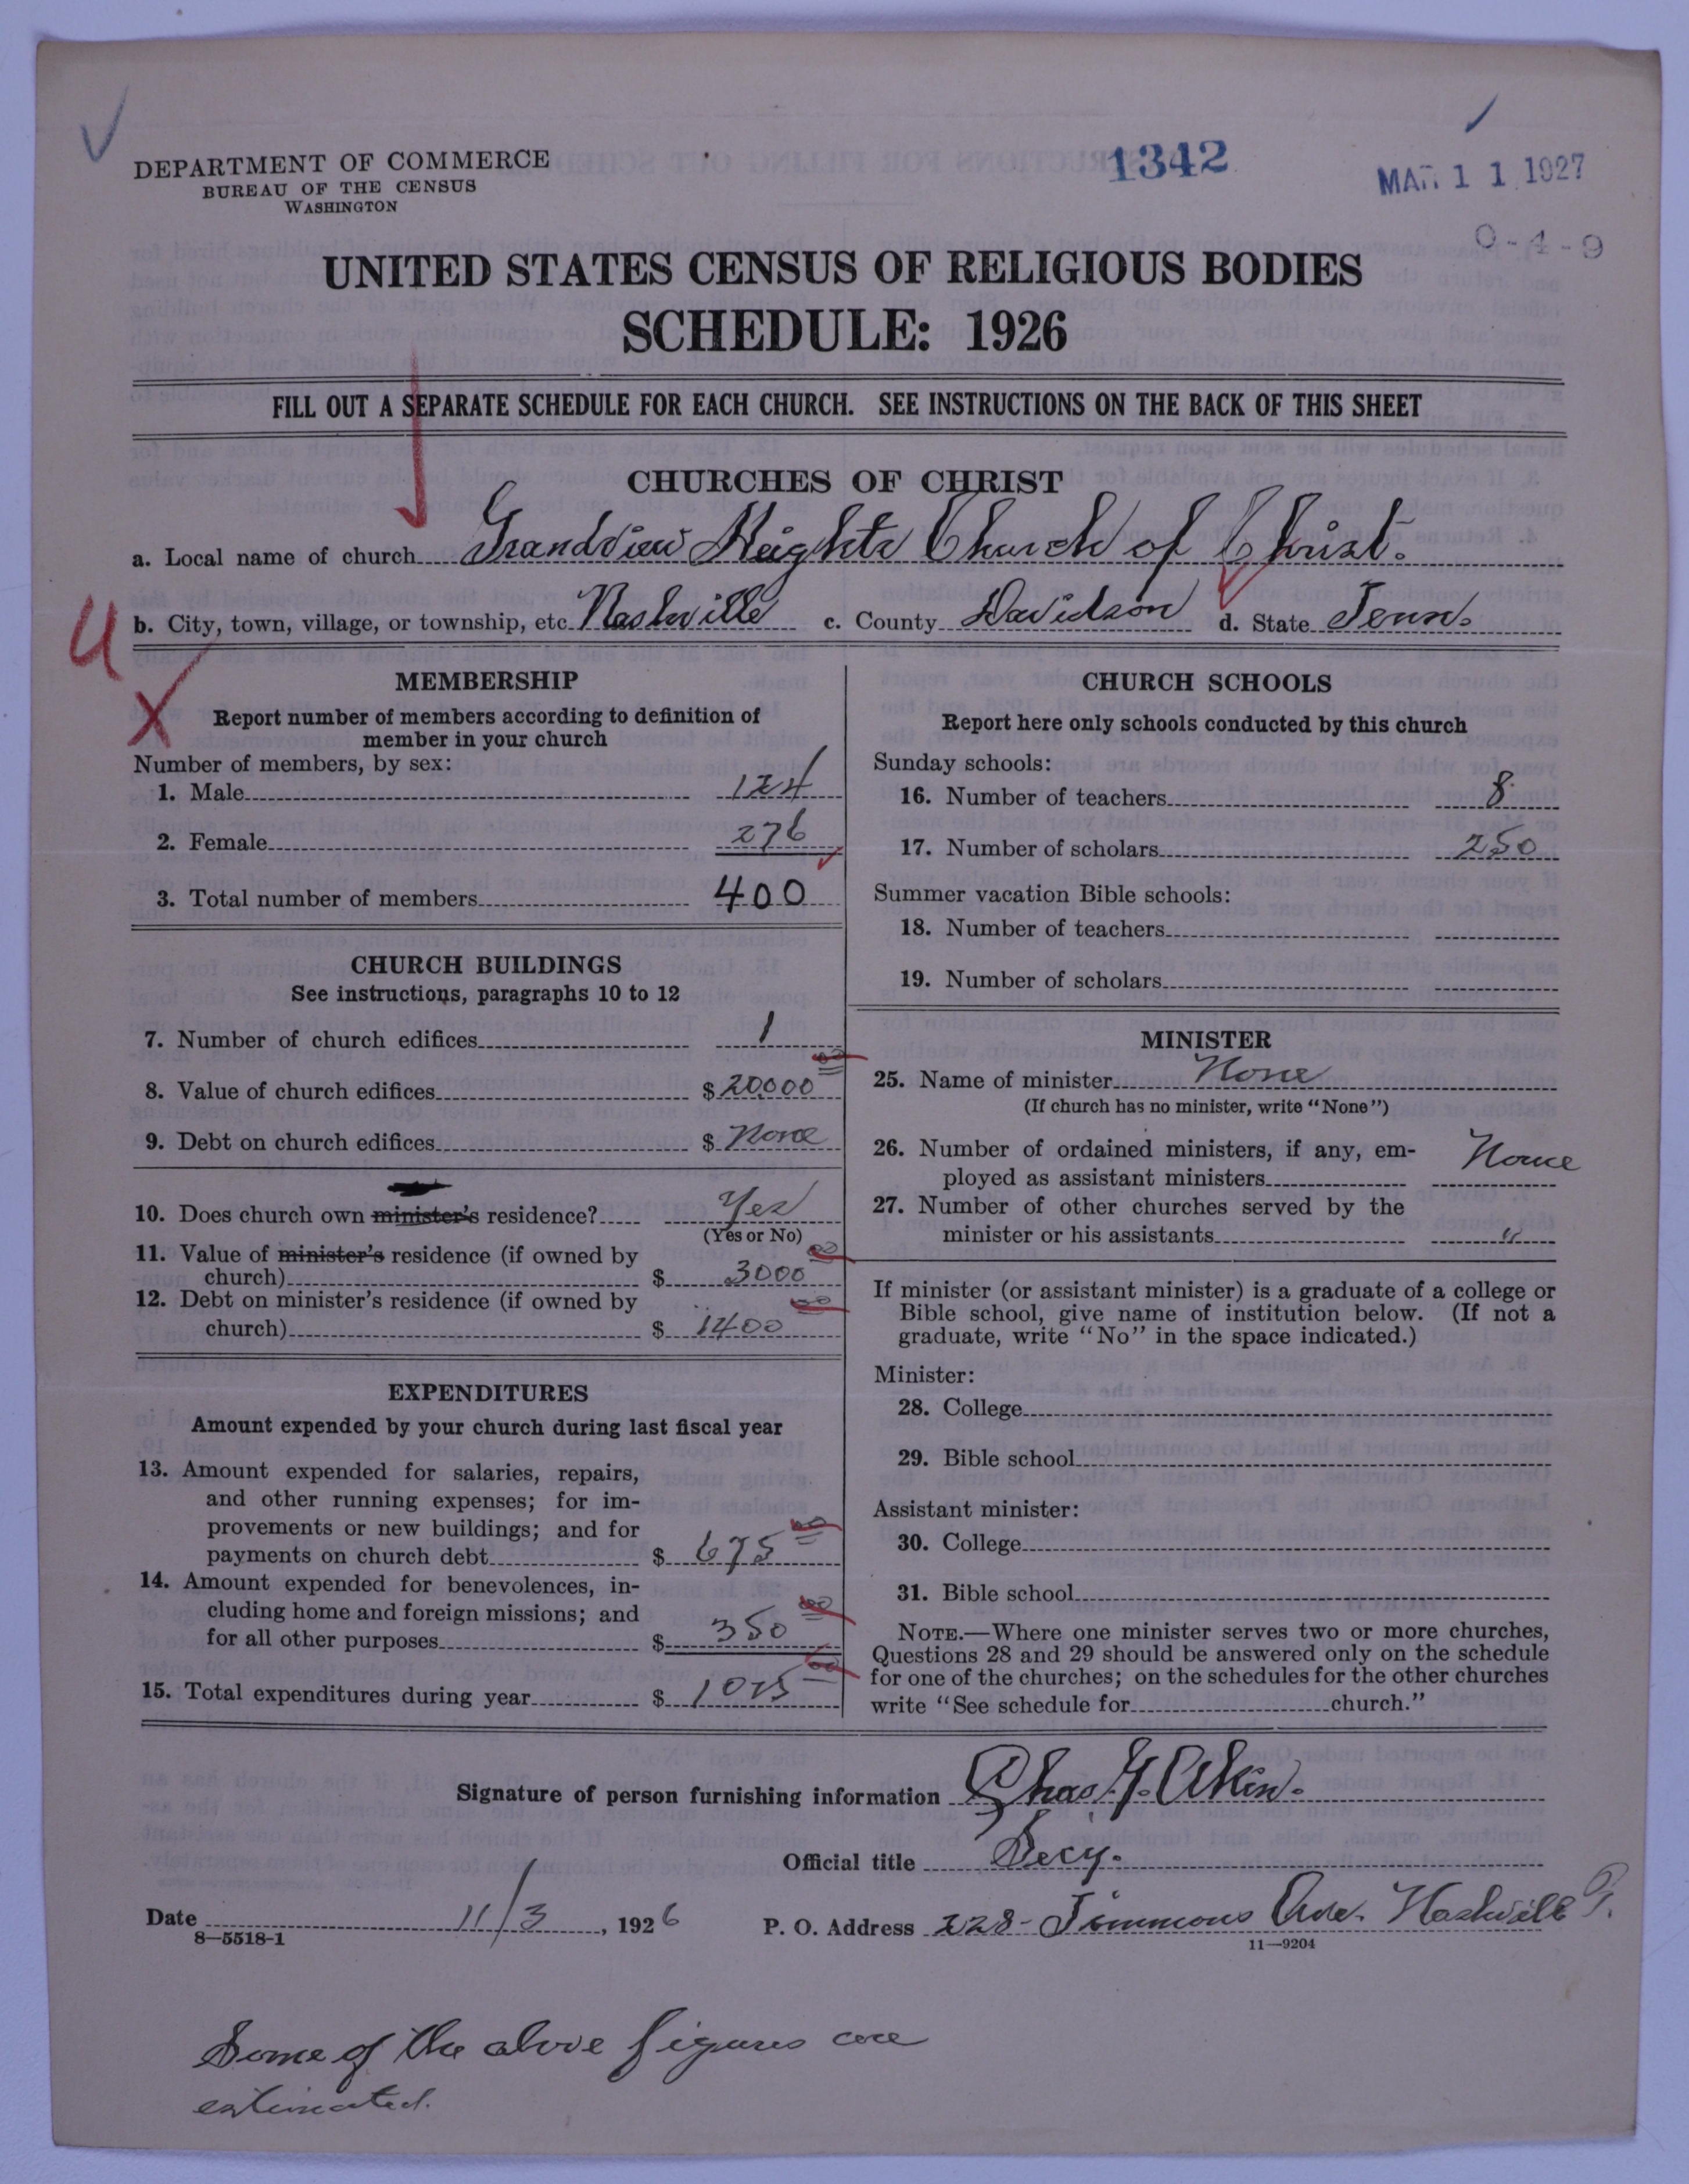 DEPARTMENT OF COMMERCE
BUREAU OF THE CENSUS
WASHINGTON
1342
MAR 11 1927
0-4-9
UNITED STATES CENSUS OF RELIGIOUS BODIES
SCHEDULE: 1926
FILL OUT A SEPARATE SCHEDULE FOR EACH CHURCH. SEE INSTRUCTIONS ON THE BACK OF THIS SHEET
CHURCHES OF CHRIST
a. Local name of church Grandview Heights Church of Christ.
b. City, town, village, or township, etc. Nashville c. County Davidson d. State Tenn.
U
X
MEMBERSHIP
Report number of members according to definition of
member in your church
Number of members, by sex:
1. Male 124
2. Female 276
3. Total number of members 400
CHURCH BUILDINGS
See instructions, paragraphs 10 to 12
7. Number of church edifices 1
8. Value of church edifices $20,000 00
9. Debt on church edifices $ None
10. Does church own minister's residence? Yes
(Yes or No)
11. Value of minister's residence (if owned by
church) $ 3000 00
12. Debt on minister's residence (if owned by
church) $ 1400 00
EXPENDITURES
Amount expended by your church during last fiscal year
13. Amount expended for salaries, repairs,
and other running expenses; for im-
provements or new buildings; and for
payments on church debt $ 675 00
14. Amount expended for benevolences, in-
cluding home and foreign missions; and
for all other purposes $ 350 00
15. Total expenditures during year $ 1025 00
CHURCH SCHOOLS
Report here only schools conducted by this church
Sunday schools:
16. Number of teachers 8
17. Number of scholars 250
Summer vacation Bible schools:
18. Number of teachers
19. Number of scholars
MINISTER
25. Name of minister None
(If church has no minister, write "None")
26. Number of ordained ministers, if any, em-
ployed as assistant ministers None
27. Number of other churches served by the
minister or his assistants "
If minister (or assistant minister) is a graduate of a college or
Bible school, give name of institution below. (If not a
graduate, write "No" in the space indicated.)
Minister:
28. College
29. Bible school
Assistant minister:
30. College
31. Bible school
NOTE.—Where one minister serves two or more churches,
Questions 28 and 29 should be answered only on the schedule
for one of the churches; on the schedules for the other churches
write "See schedule for church."
Signature of person furnishing information Chas. G. Akin.
Official title Secy.
Date 11/3, 1926 P. O. Address 228- Timmons Ave. Nashville T.
8—5518-1
11—9204
Some of the above figures are
estimated.